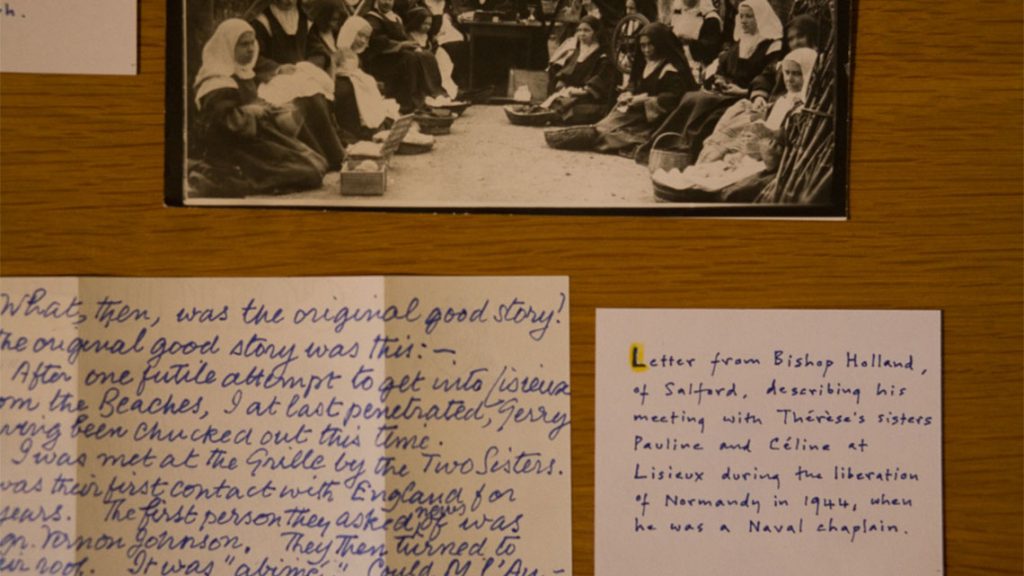 h.
What, then, was the original good story?
the original good story was this:—
After one futile attempt to get into Lisieux
om the Beaches, I at last penetrated, Gerry
ving been chucked out this time.
I was met at the Grille by the Two Sisters.
was their first contact with England for
years. The first person they asked news of was
gr. Vernon Johnson. They then turned to
eir roof. It was "abimé." Could M. l'Au-
Letter from Bishop Holland,
of Salford, describing his
meeting with Thérèse's sisters
Pauline and Céline at
Lisieux during the liberation
of Normandy in 1944, when
he was a Naval chaplain.